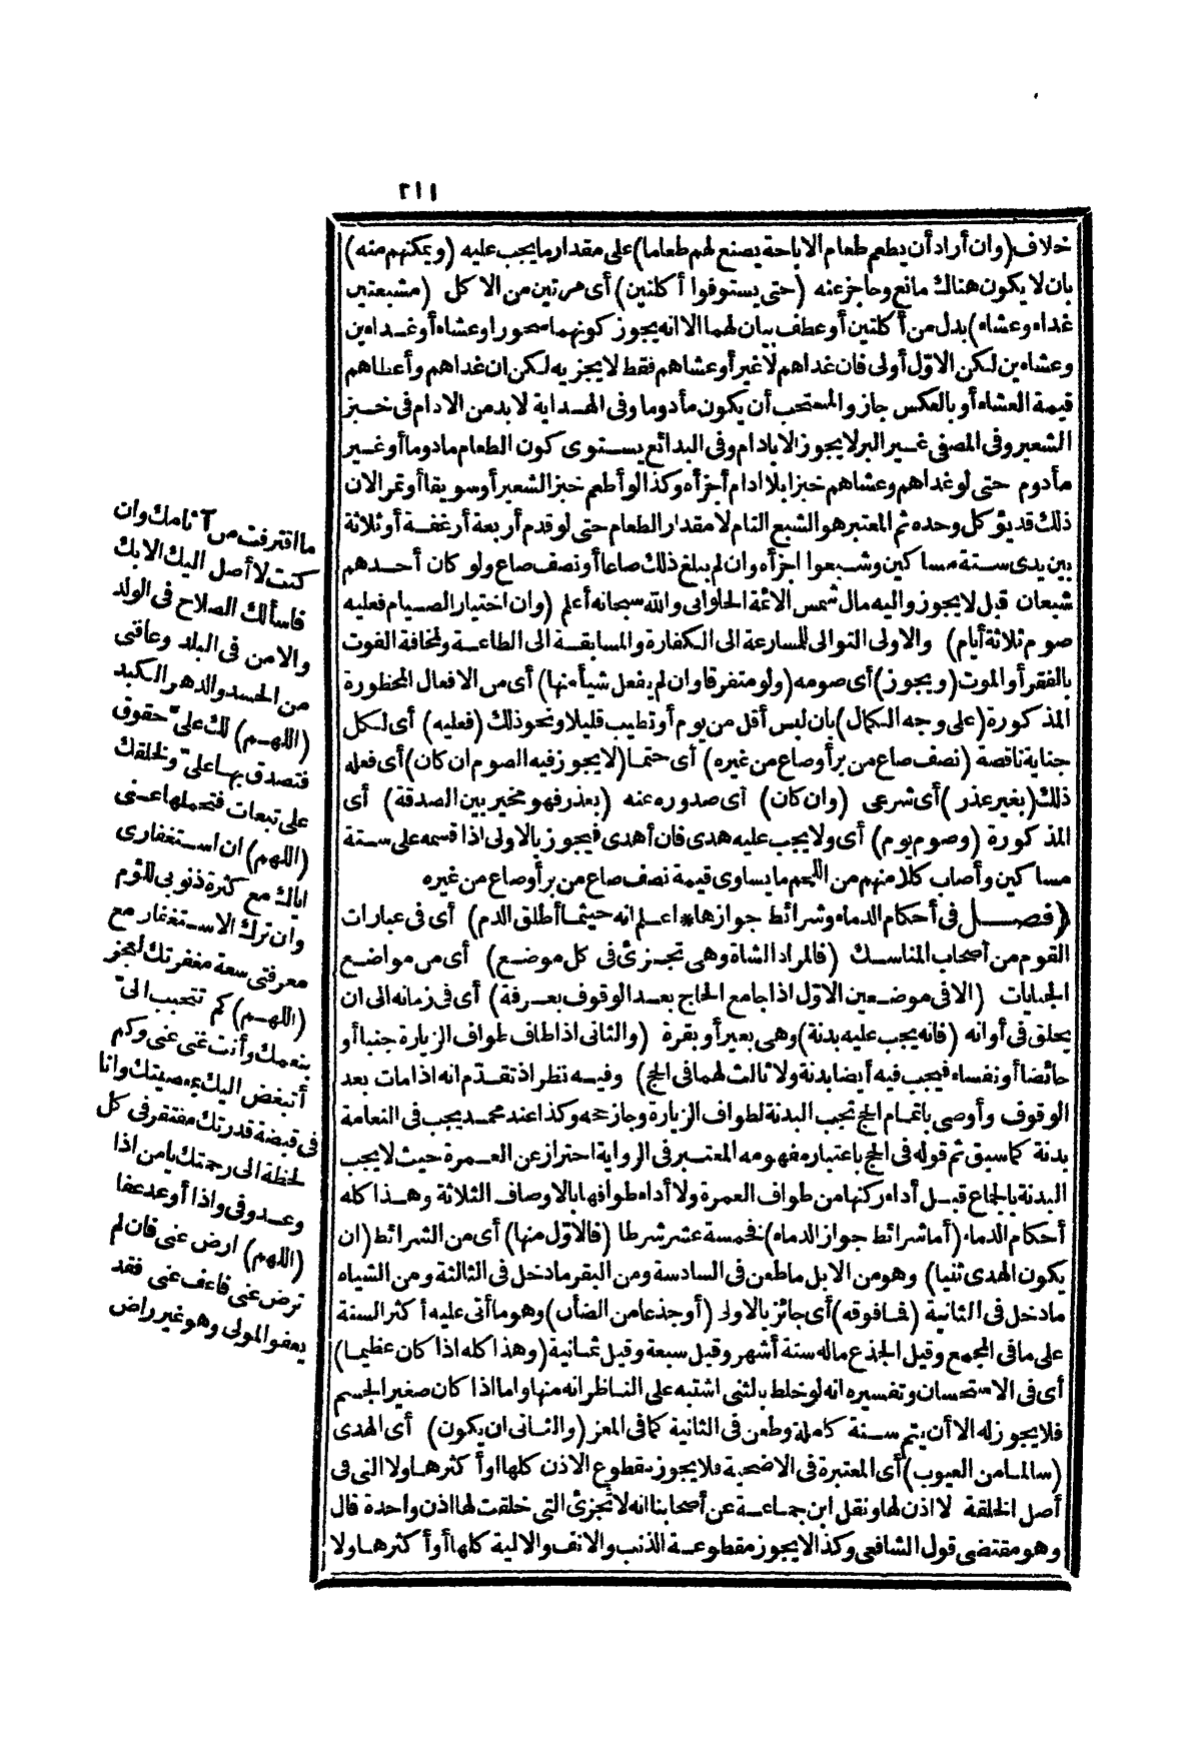 ٢١١
خلاف (وان أراد أن يطعم طعام الاباحة يصنع لهم طعاما) على مقدار ما يجب عليه (ويمكنهم منه)
بان لا يكون هناك مانع وحاجز عنه (حتى يستوفوا أكلتين) أى مرتين من الاكل (مشبعتين
غداء وعشاء) بدل من أكلتين أو عطف بيان لهما الا انه يجوز كونهما سحورا وعشاء أو غداءين
وعشاءين لكن الاوّل أولى فان غداهم لا غير أو عشاهم فقط لا يجزيه لكن ان غداهم وأعطاهم
قيمة العشاء أو بالعكس جاز والمستحب أن يكون مأدوما وفى الهداية لا بد من الادام فى خبز
الشعير وفى المصفى غير البر لا يجوز الا بادام وفى البدائع يستوى كون الطعام مادوما أو غير
مأدوم حتى لو غداهم وعشاهم خبزا بلا ادام أجزأه وكذا لو أطعم خبز الشعير أو سويقا أو تمر الان
ذلك قد يؤكل وحده ثم المعتبر هو الشبع التام لا مقدار الطعام حتى لو قدم أربعة أرغفة أو ثلاثة
بين يدى ستة مساكين وشبعوا اجزأه وان لم يبلغ ذلك صاعا أو نصف صاع ولو كان أحدهم
شبعان قبل لا يجوز واليه مال شمس الائمة الحلوانى والله سبحانه أعلم (وان اختيار الصيام فعليه
صوم ثلاثة أيام) والاولى التوالى للمسارعة الى الكفارة والمسابقة الى الطاعة ولمخافة الفوت
بالفقر أو الموت (ويجوز) أى صومه (ولو متفرقا وان لم يفعل شيأ منها) أى من الافعال المحظورة
المذكورة (على وجه الكمال) بان لبس أقل من يوم أو تطيب قليلا ونحو ذلك (فعليه) أى لكل
جناية ناقصة (نصف صاع من بر أو صاع من غيره) أى حتما (لا يجوز فيه الصوم ان كان) أى فعله
ذلك (بغير عذر) أى شرعى (وان كان) أى صدوره عنه (بعذر فهو مخير بين الصدقة) أى
المذكورة (وصوم يوم) أى ولا يجب عليه هدى فان أهدى فيجوز بالاولى اذا قسمه على ستة
مساكين وأصاب كلا منهم من اللحم ما يساوى قيمة نصف صاع من بر أو صاع من غيره
﴿فصل فى أحكام الدماء وشرائط جوازها * اعلم انه حيثما أطلق الدم) أى فى عبارات
القوم من أصحاب المناسك (فالمراد الشاة وهى تجزئ فى كل موضع) أى من مواضع
الجنايات (الا فى موضعين الاوّل اذا جامع الحاج بعد الوقوف بعرفة) أى فى زمانه الى ان
يحلق فى أوانه (فانه يجب عليه بدنة) وهى بعير أو بقرة (والثانى اذا طاف طواف الزيارة جنبا أو
حائضا أو نفساء فيجب فيه أيضا بدنة ولا ثالث لهما فى الحج) وفيه نظر اذ تقدّم انه اذا مات بعد
الوقوف وأوصى باتمام الحج تجب البدنة لطواف الزيارة وجاز حجه وكذا عند محمد يجب فى النعامة
بدنة كما سبق ثم قوله فى الحج باعتبار مفهومه المعتبر فى الرواية احتراز عن العمرة حيث لا يجب
البدنة بالجماع قبل أداء ركنها من طواف العمرة ولا أداء طوافها بالاوصاف الثلاثة وهذا كله
أحكام الدماء (أما شرائط جواز الدماء) فخمسة عشر شرطا (فالاوّل منها) أى من الشرائط (ان
يكون الهدى ثنيا) وهو من الابل ما طعن فى السادسة ومن البقر ما دخل فى الثالثة ومن الشياه
ما دخل فى الثانية (فما فوقه) أى جائز بالاولى (أو جذعا من الضأن) وهو ما أتى عليه أكثر السنة
على ما فى المجمع وقيل الجذع ماله ستة أشهر وقيل سبعة وقيل ثمانية (وهذا كله اذا كان عظيما)
أى فى الاستحسان وتفسيره انه لو خلط بالثنى اشتبه على الناظر انه منها واما اذا كان صغير الجسم
فلا يجوز له الا أن يتم سنة كاملة وطعن فى الثانية كما فى المعز (والثانى ان يكون) أى الهدى
(سالما من العيوب) أى المعتبرة فى الاضحية فلا يجوز مقطوع الاذن كلها أو أكثرها ولا التى فى
أصل الخلقة لا اذن لها ونقل ابن جماعة عن أصحابنا انه لا تجزئ التى خلقت لها اذن واحدة قال
وهو مقتضى قول الشافعى وكذا لا يجوز مقطوعة الذنب والانف والالية كلها أو أكثرها ولا
ما اقترفت من آثامك وان
كنت لا أصل اليك الا بك
فاسألك الصلاح فى الولد
والامن فى البلد وعافنى
من الحسد والدهر الكبد
(اللهم) لك علىّ حقوق
فتصدق بها علىّ ولخلقك
على تبعات فتحملها عنى
(اللهم) ان استغفارى
اياك مع كثرة ذنوبى للؤم
وان ترك الاستغفار مع
معرفتى سعة مغفرتك لعجز
(اللهم) كم تتحبب الىّ
بنعمك وأنت غنى عنى وكم
أتبغض اليك بمعصيتك وانا
فى قبضة قدرتك مفتقر فى كل
لحظة الى رحمتك يا من اذا
وعد وفى واذا أوعد عفا
(اللهم) ارض عنى فان لم
ترض عنى فاعف عنى فقد
يعفو المولى وهو غير راض